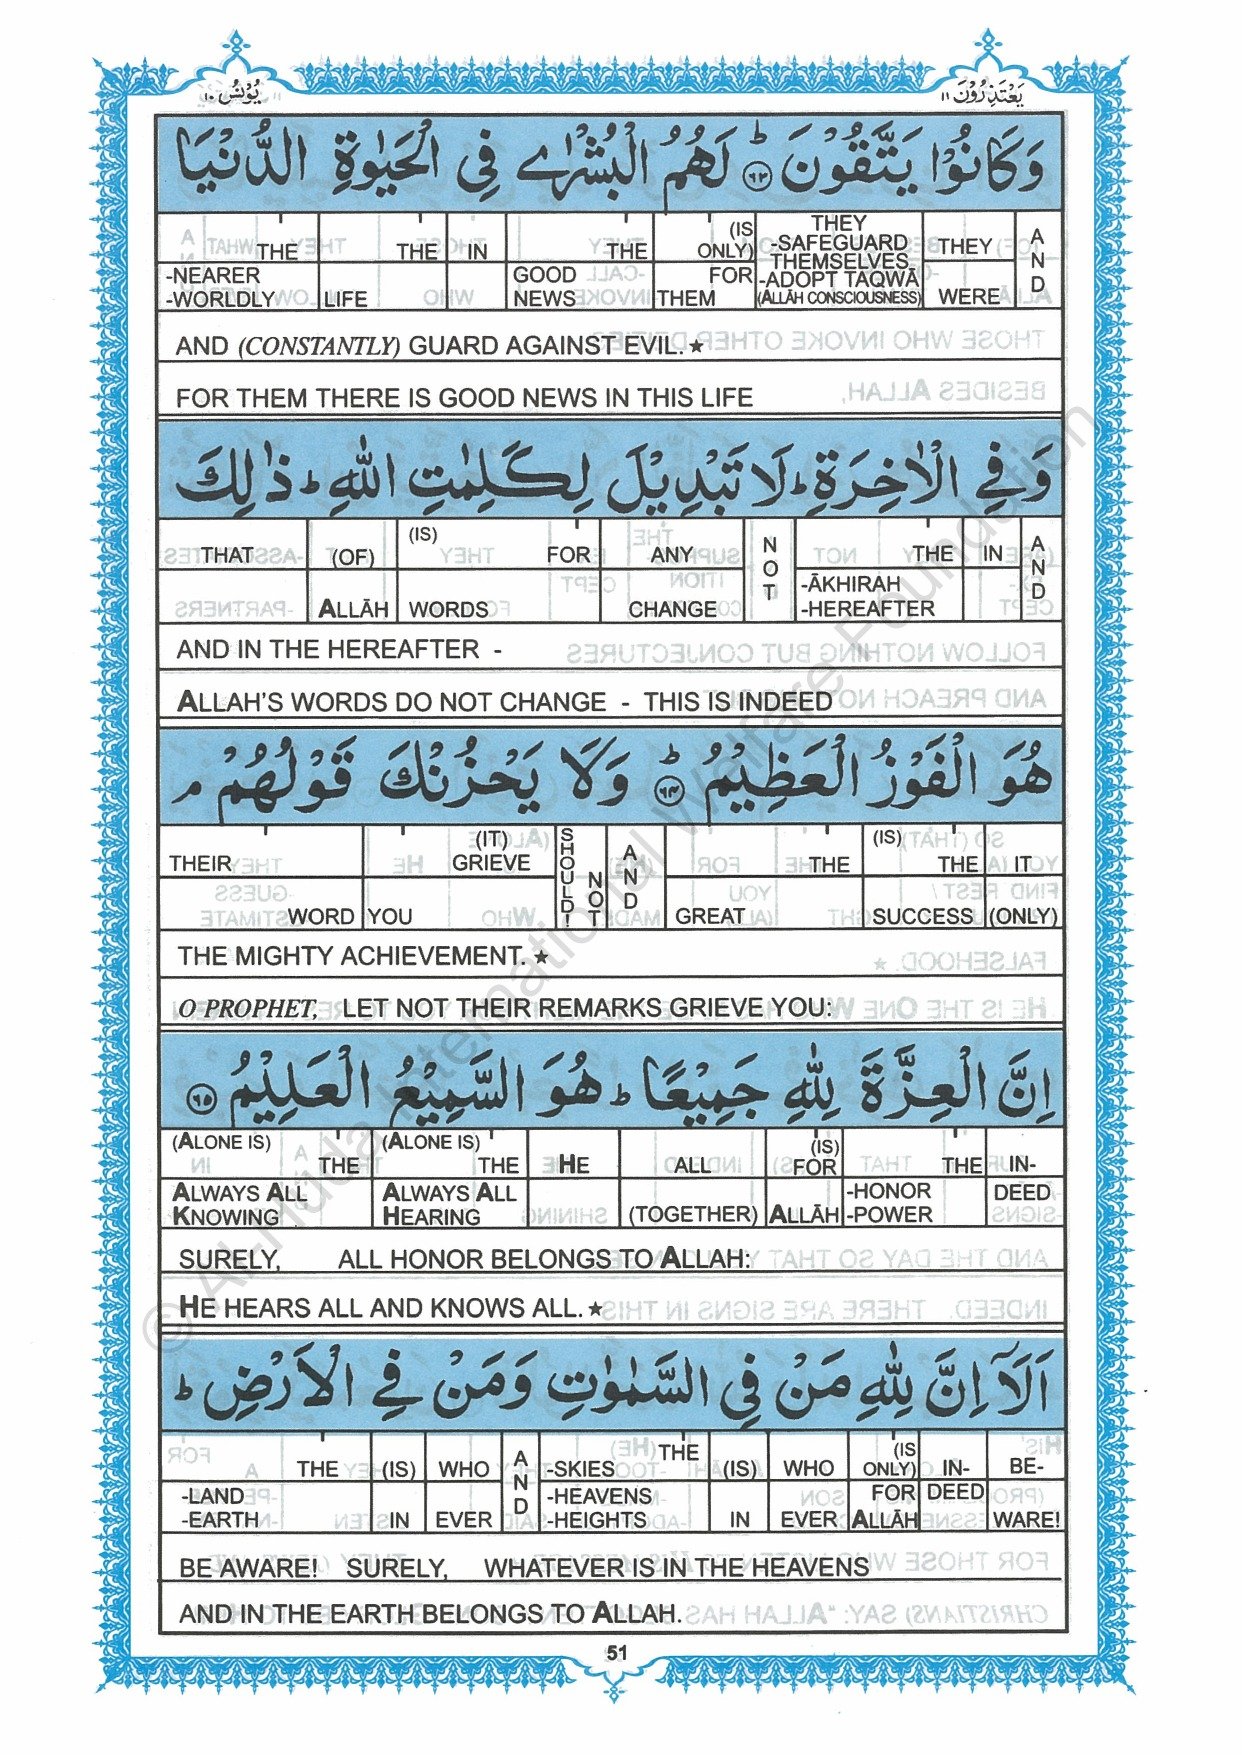 يَعْتَذِرُوْنَ ١١
يُوْنُسُ ١٠
وَكَانُوْا يَتَّقُوْنَ ؕ ﴿٦٣﴾ لَهُمُ الْبُشْرٰى فِي الْحَيٰوةِ الدُّنْيَا
THE THE IN THE (IS ONLY) THEY -SAFEGUARD THEMSELVES -ADOPT TAQWĀ (ALLĀH CONSCIOUSNESS) THEY AND
-NEARER -WORLDLY LIFE GOOD NEWS FOR THEM WERE
AND (CONSTANTLY) GUARD AGAINST EVIL.★
FOR THEM THERE IS GOOD NEWS IN THIS LIFE
وَفِي الْاٰخِرَةِ ؕ لَا تَبْدِيْلَ لِكَلِمٰتِ اللّٰهِ ؕ ذٰلِكَ
THAT (OF) (IS) FOR ANY NOT THE IN AND
ALLĀH WORDS CHANGE -ĀKHIRAH -HEREAFTER
AND IN THE HEREAFTER -
ALLAH'S WORDS DO NOT CHANGE - THIS IS INDEED
هُوَ الْفَوْزُ الْعَظِيْمُ ؕ ﴿٦٤﴾ وَلَا يَحْزُنْكَ قَوْلُهُمْ ۘ
THEIR (IT) GRIEVE SHOULD! NOT AND THE (IS) THE IT
WORD YOU GREAT SUCCESS (ONLY)
THE MIGHTY ACHIEVEMENT. ★
O PROPHET, LET NOT THEIR REMARKS GRIEVE YOU:
اِنَّ الْعِزَّةَ لِلّٰهِ جَمِيْعًا ؕ هُوَ السَّمِيْعُ الْعَلِيْمُ ﴿٦٥﴾
(ALONE IS) THE (ALONE IS) THE HE ALL (IS) FOR THE IN-
ALWAYS ALL KNOWING ALWAYS ALL HEARING (TOGETHER) ALLĀH -HONOR -POWER DEED
SURELY, ALL HONOR BELONGS TO ALLAH:
HE HEARS ALL AND KNOWS ALL.★
اَلَآ اِنَّ لِلّٰهِ مَنْ فِي السَّمٰوٰتِ وَمَنْ فِي الْاَرْضِ ؕ
THE (IS) WHO AND -SKIES THE (IS) WHO (IS ONLY) IN- BE-
-LAND -EARTH IN EVER -HEAVENS -HEIGHTS IN EVER FOR ALLĀH DEED WARE!
BE AWARE! SURELY, WHATEVER IS IN THE HEAVENS
AND IN THE EARTH BELONGS TO ALLAH.
51
© Al-Huda International Welfare Foundation